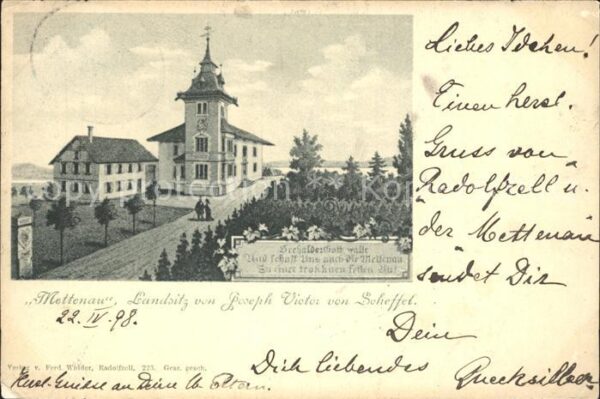 Liebes Idchen!
Einen herzl.
Gruss von
Radolfzell u.
der Mettenau
sendet Dir
Dein
Dich liebendes
Quecksilber
Seehalde Gott walte
Und schaff Uns auch die Mettenau
Zu einer trokknen festen Au!
„Mettenau", Landsitz von Joseph Victor von Scheffel.
22. IV. 98.
Verlag v. Ferd Walder, Radolfzell. 225. Ges. gesch.
Herzl. Grüsse an Deine lb. Eltern.